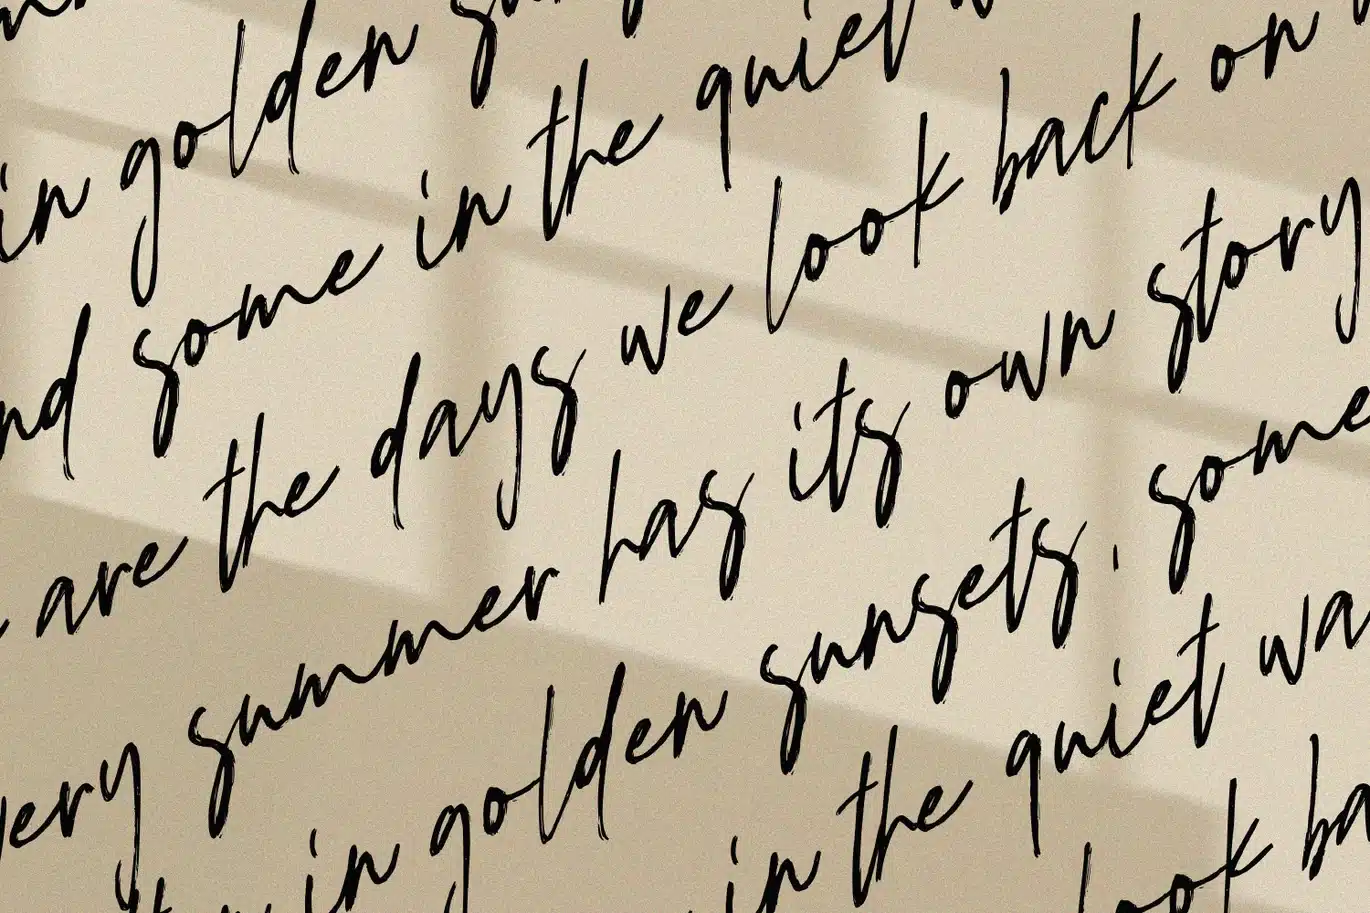 in golden
nd some in the quiet
are the days we look back on
very summer has its own story
in golden sunsets, some
in the quiet wa
look ba